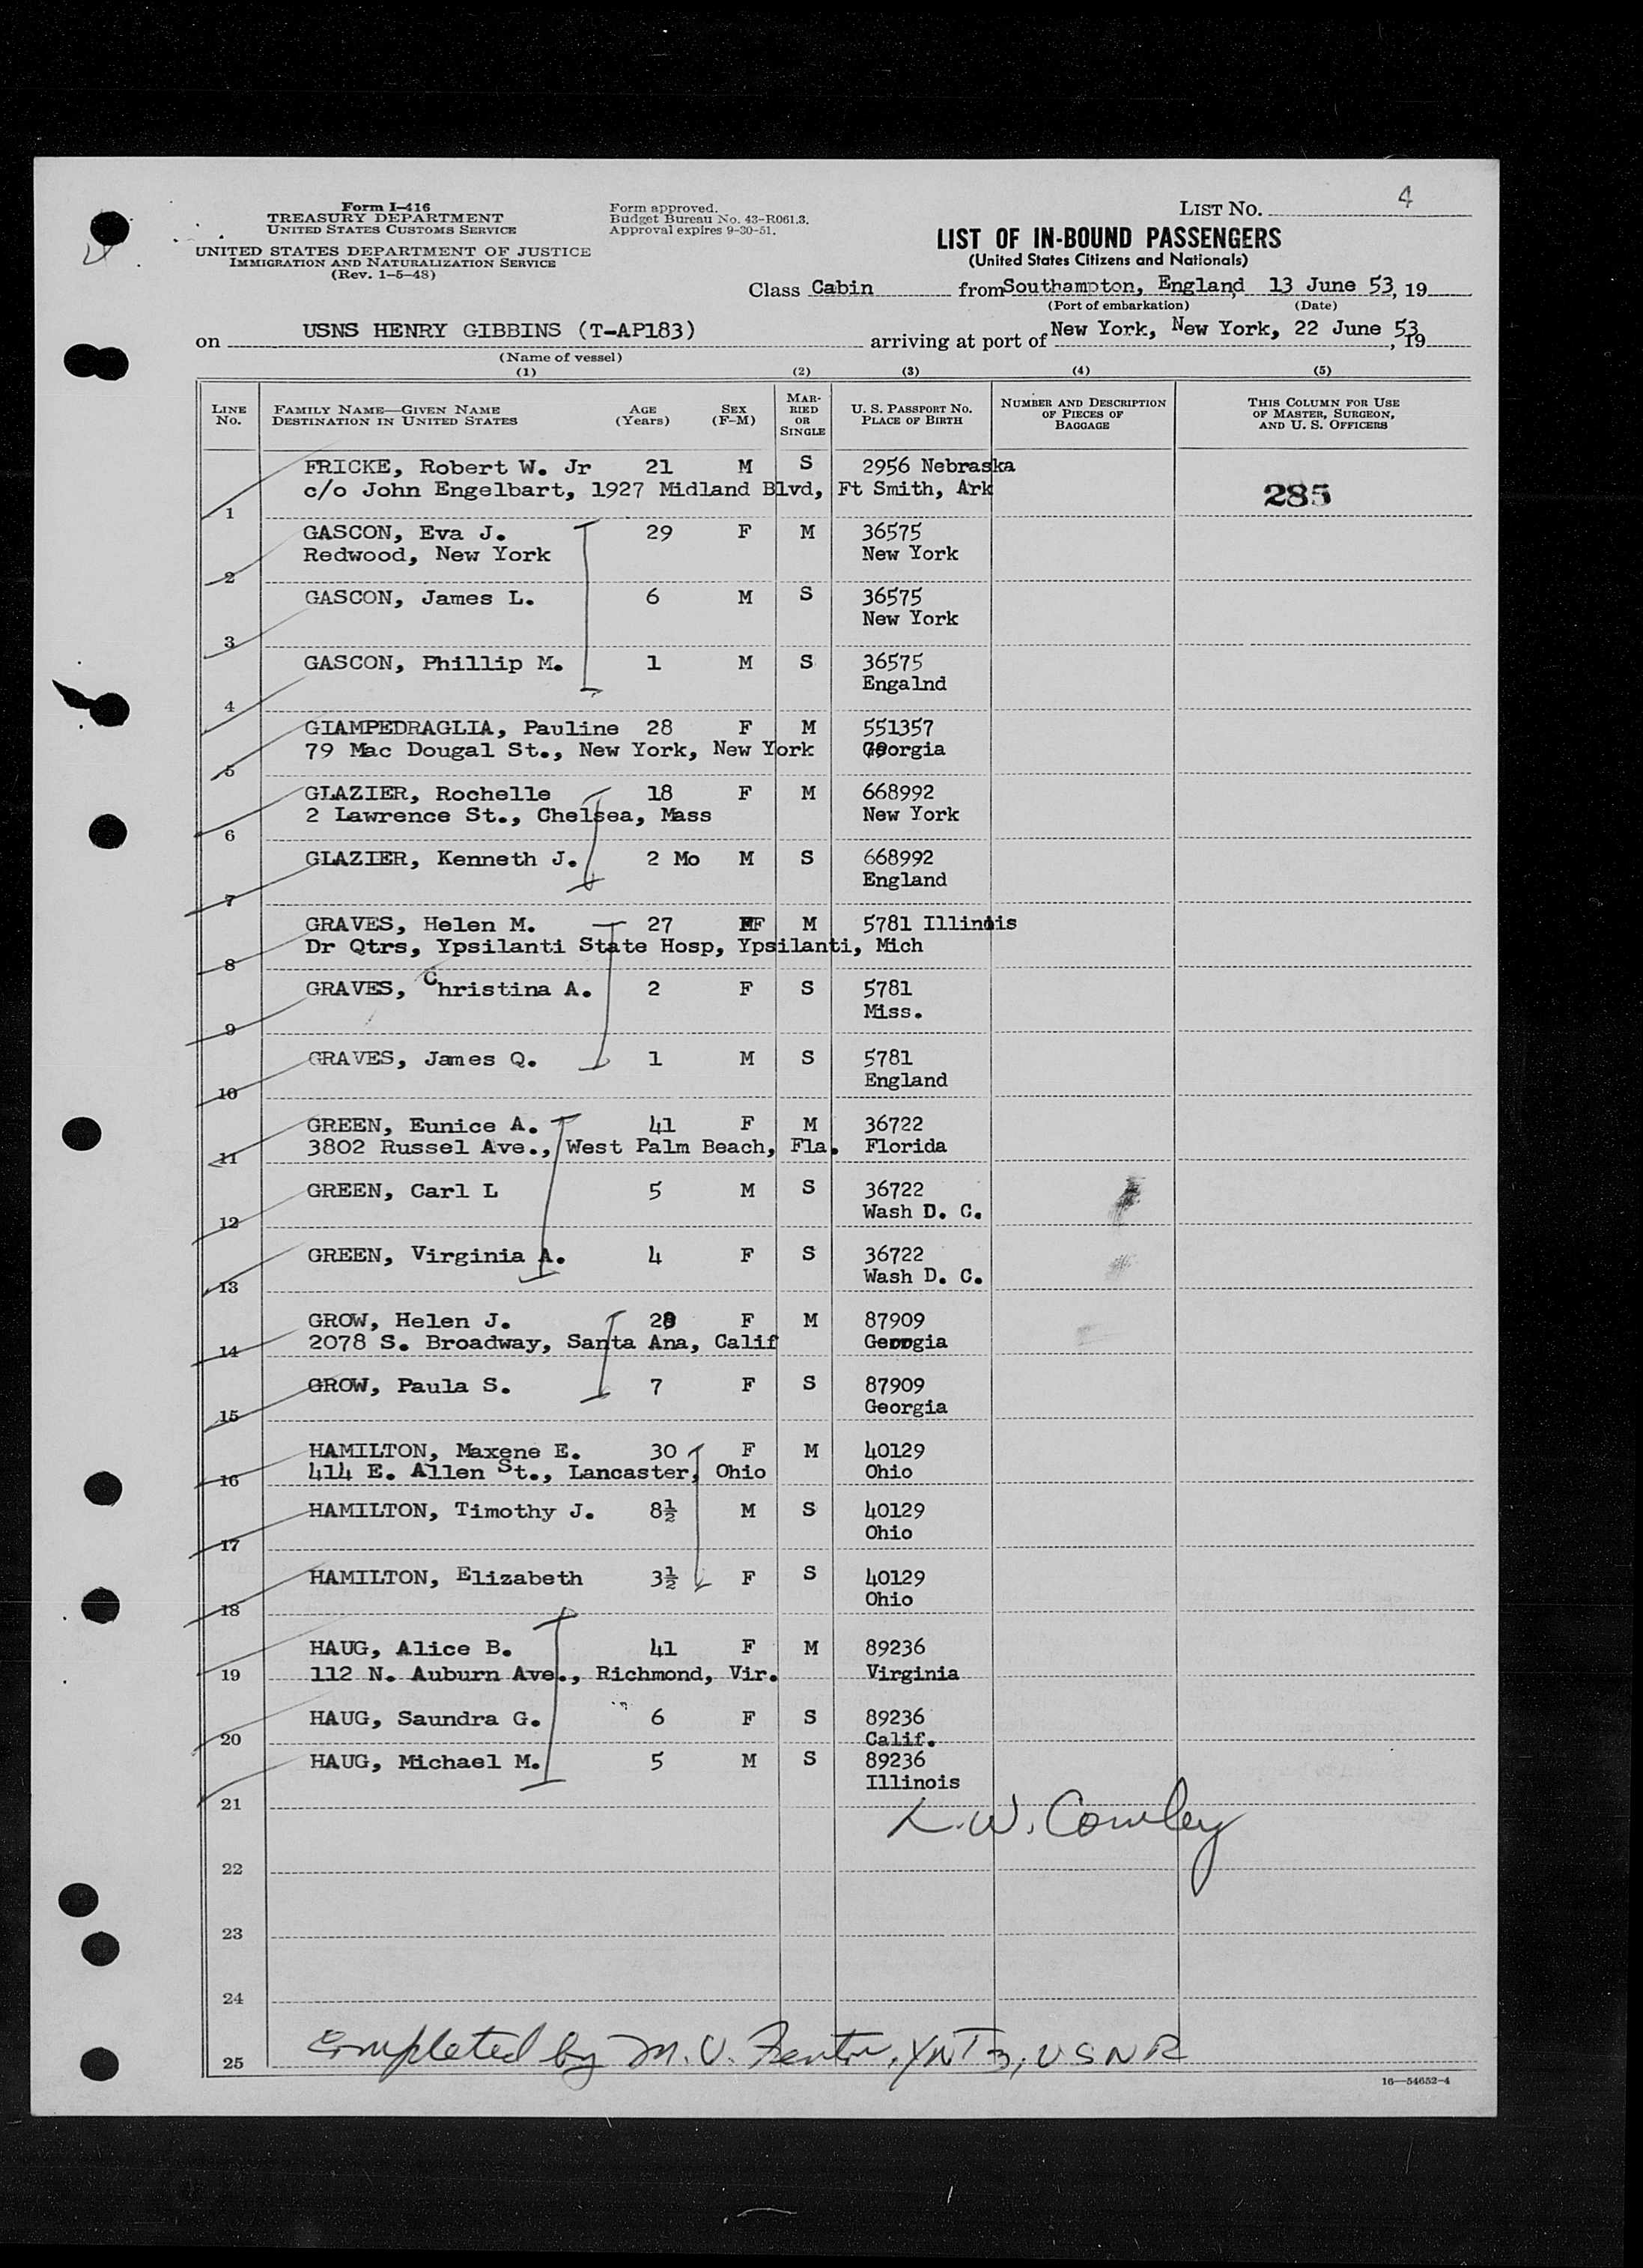 4
Form I-416
TREASURY DEPARTMENT
UNITED STATES CUSTOMS SERVICE
UNITED STATES DEPARTMENT OF JUSTICE
IMMIGRATION AND NATURALIZATION SERVICE
(Rev. 1-5-48)
Form approved.
Budget Bureau No. 43-R061.3.
Approval expires 9-30-51.
LIST NO.
LIST OF IN-BOUND PASSENGERS
(United States Citizens and Nationals)
Class Cabin from Southampton, England 13 June 53, 19
(Port of embarkation) (Date)
on USNS HENRY GIBBINS (T-AP183) arriving at port of New York, New York, 22 June 53, 19
(Name of vessel)
(1) (2) (3) (4) (5)
LINE NO. FAMILY NAME—GIVEN NAME DESTINATION IN UNITED STATES AGE (Years) SEX (F-M) MARRIED OR SINGLE U. S. PASSPORT NO. PLACE OF BIRTH NUMBER AND DESCRIPTION OF PIECES OF BAGGAGE THIS COLUMN FOR USE OF MASTER, SURGEON, AND U. S. OFFICERS
FRICKE, Robert W. Jr 21 M S 2956 Nebraska
c/o John Engelbart, 1927 Midland Blvd, Ft Smith, Ark 285
1
GASCON, Eva J. 29 F M 36575
Redwood, New York New York
2
GASCON, James L. 6 M S 36575
New York
3
GASCON, Phillip M. 1 M S 36575
Engalnd
4
GIAMPEDRAGLIA, Pauline 28 F M 551357
79 Mac Dougal St., New York, New York Georgia
5
GLAZIER, Rochelle 18 F M 668992
2 Lawrence St., Chelsea, Mass New York
6
GLAZIER, Kenneth J. 2 Mo M S 668992
England
7
GRAVES, Helen M. 27 F M 5781 Illinois
Dr Qtrs, Ypsilanti State Hosp, Ypsilanti, Mich
8
GRAVES, Christina A. 2 F S 5781
Miss.
9
GRAVES, James Q. 1 M S 5781
England
10
GREEN, Eunice A. 41 F M 36722
3802 Russel Ave., West Palm Beach, Fla. Florida
11
GREEN, Carl L 5 M S 36722
Wash D. C.
12
GREEN, Virginia A. 4 F S 36722
Wash D. C.
13
GROW, Helen J. F M 87909
2078 S. Broadway, Santa Ana, Calif Georgia
14
GROW, Paula S. 7 F S 87909
Georgia
15
HAMILTON, Maxene E. 30 F M 40129
414 E. Allen St., Lancaster, Ohio Ohio
16
HAMILTON, Timothy J. 8½ M S 40129
Ohio
17
HAMILTON, Elizabeth 3½ F S 40129
Ohio
18
HAUG, Alice B. 41 F M 89236
19 112 N. Auburn Ave., Richmond, Vir. Virginia
HAUG, Saundra G. 6 F S 89236
20 Calif.
HAUG, Michael M. 5 M S 89236
Illinois
21
L. W. Cowley
22
23
24
25 Completed by M. V. Fenton, YNT3, USNR
16—54652-4